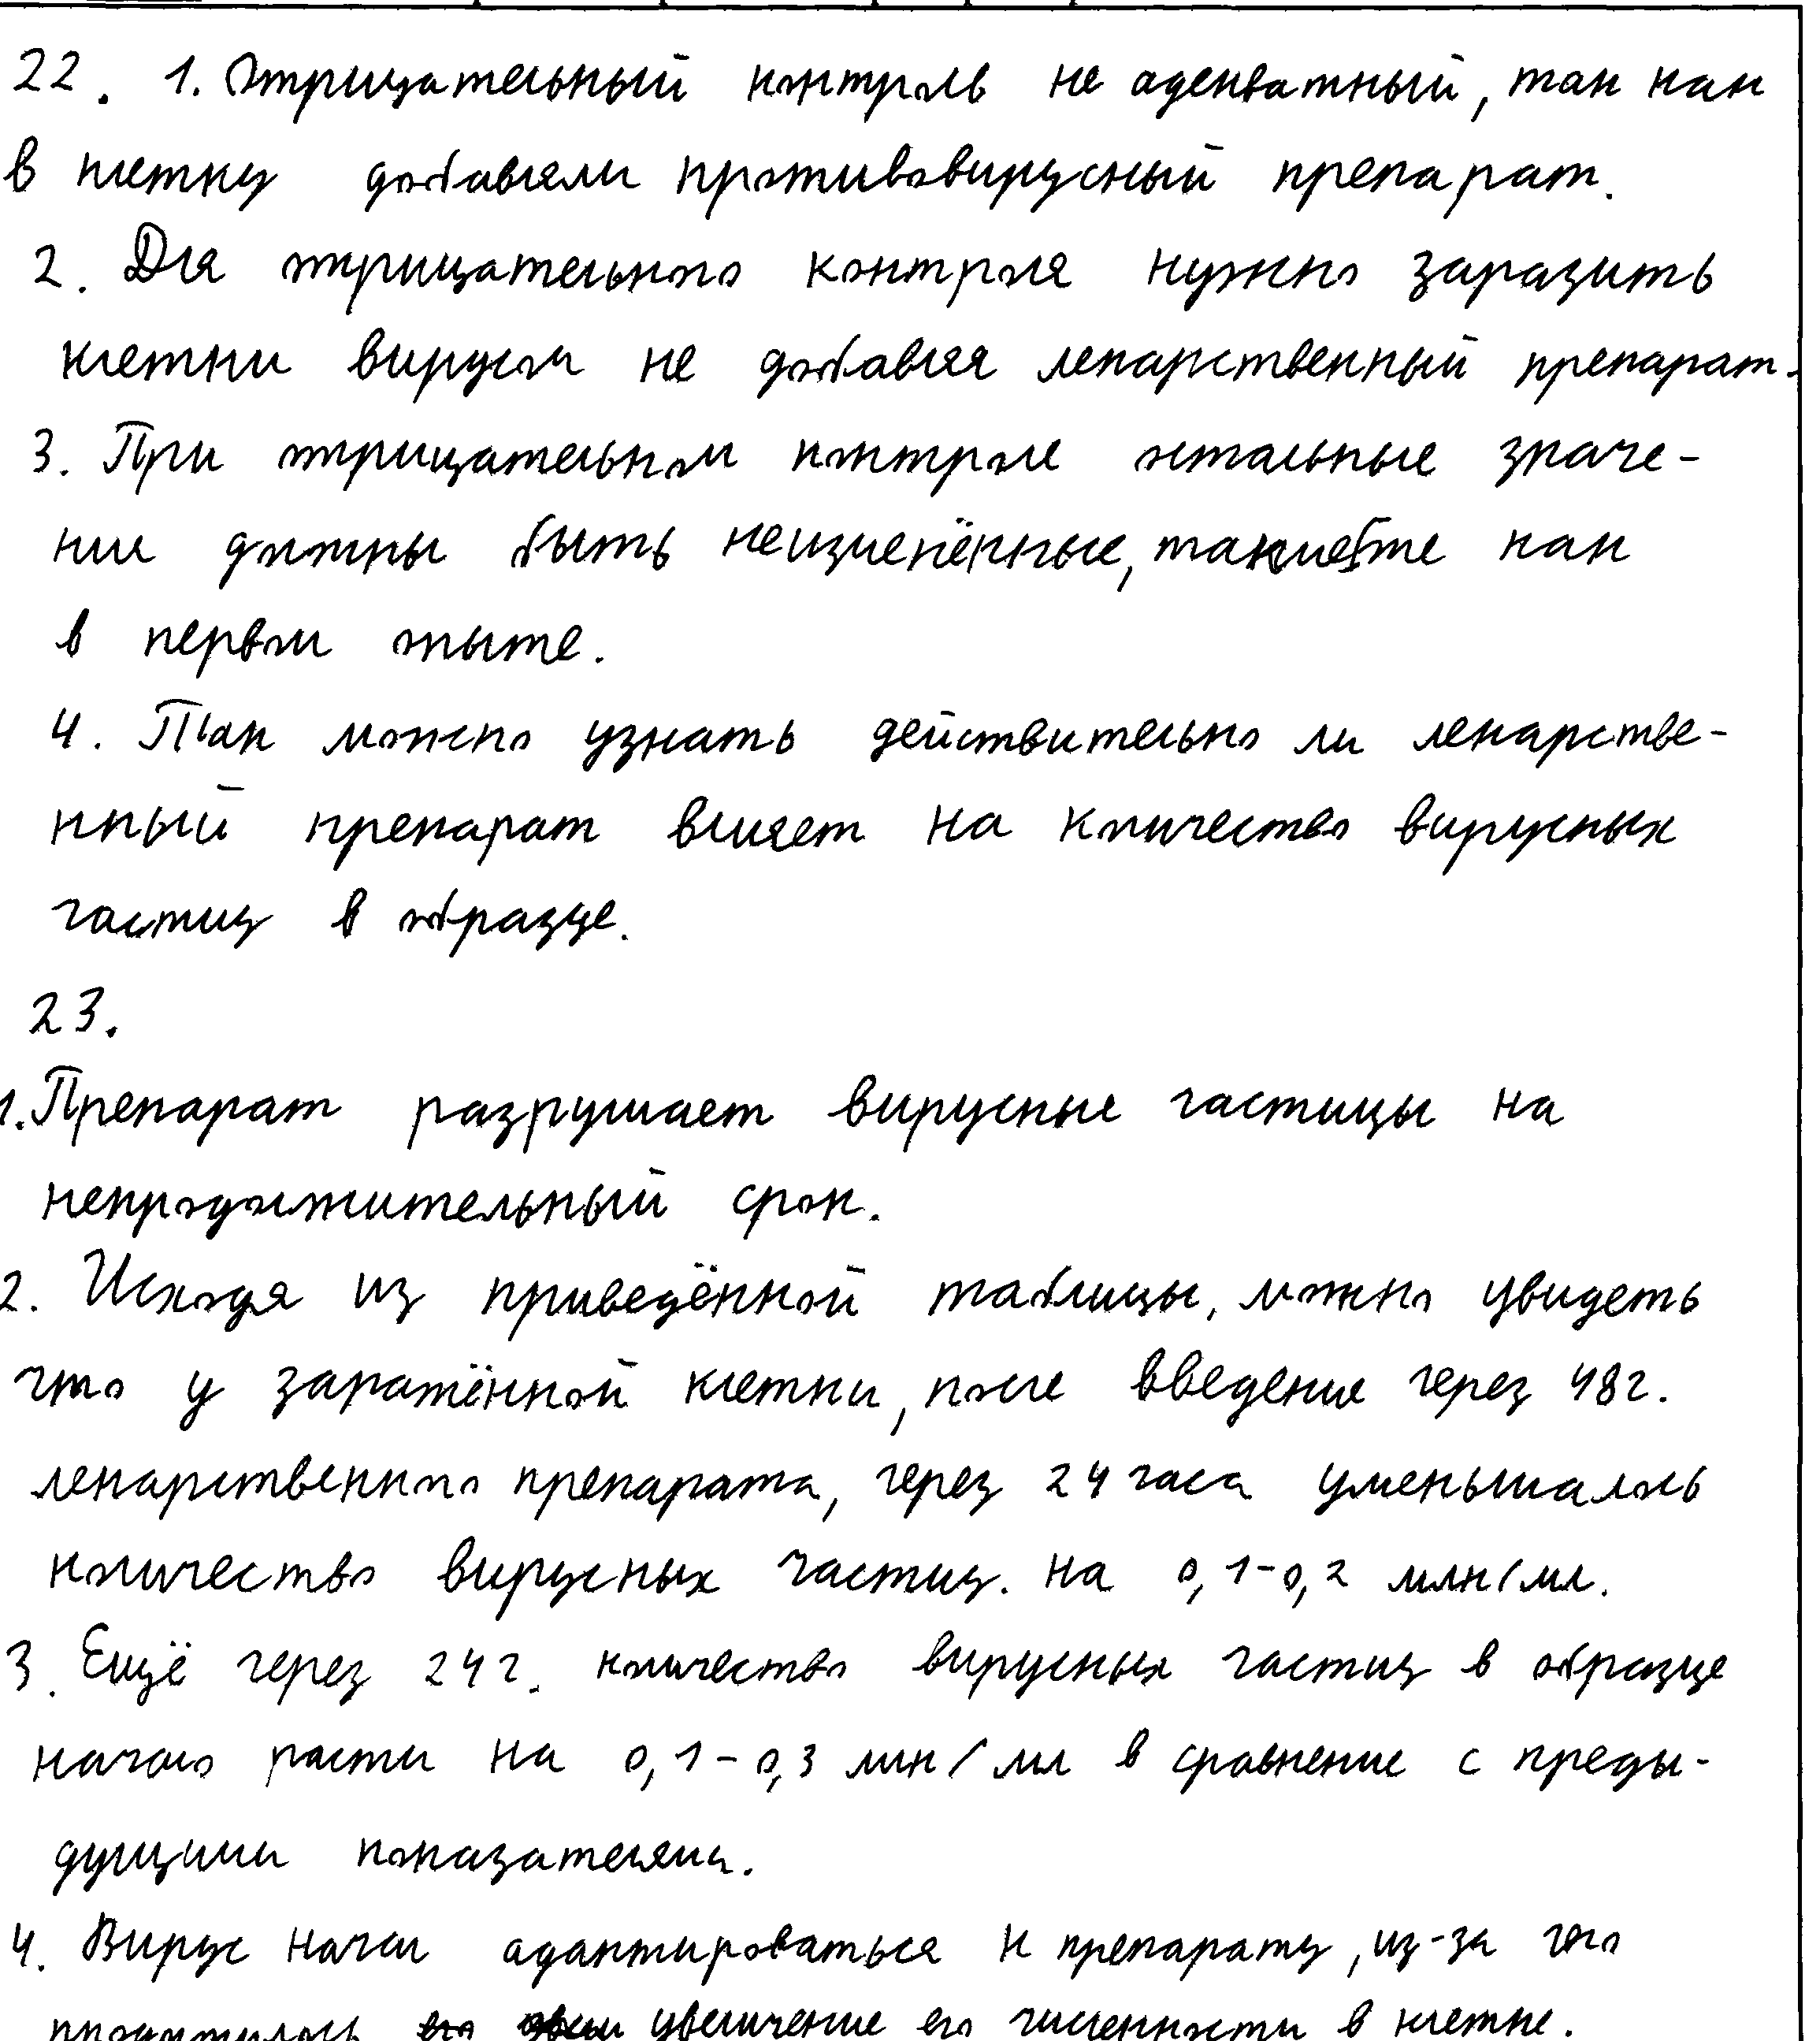 22. 1. Отрицательный контроль не адекватный, так как
в клетку добавляли противовирусный препарат.
2. Для отрицательного контроля нужно заразить
клетки вирусом не добавляя лекарственный препарат.
3. При отрицательном контроле остальные значе-
нии должны быть неизменённые, такие же как
в первом опыте.
4. Так можно узнать действительно ли лекарстве-
нный препарат влияет на количество вирусных
частиц в образце.
23.
1. Препарат разрушает вирусные частицы на
непродолжительный срок.
2. Исходя из приведённой таблицы, можно увидеть
что у заражённой клетки, после введение через 48ч.
лекарственного препарата, через 24 часа уменьшалось
количество вирусных частиц. на 0,1-0,2 млн/мл.
3. Ещё через 24ч. количество вирусных частиц в образце
начало расти на 0,1-0,3 млн/мл в сравнение с преды-
дущими показателями.
4. Вирус начал адаптироваться к препарату, из-за чего
увеличение его численности в клетке.